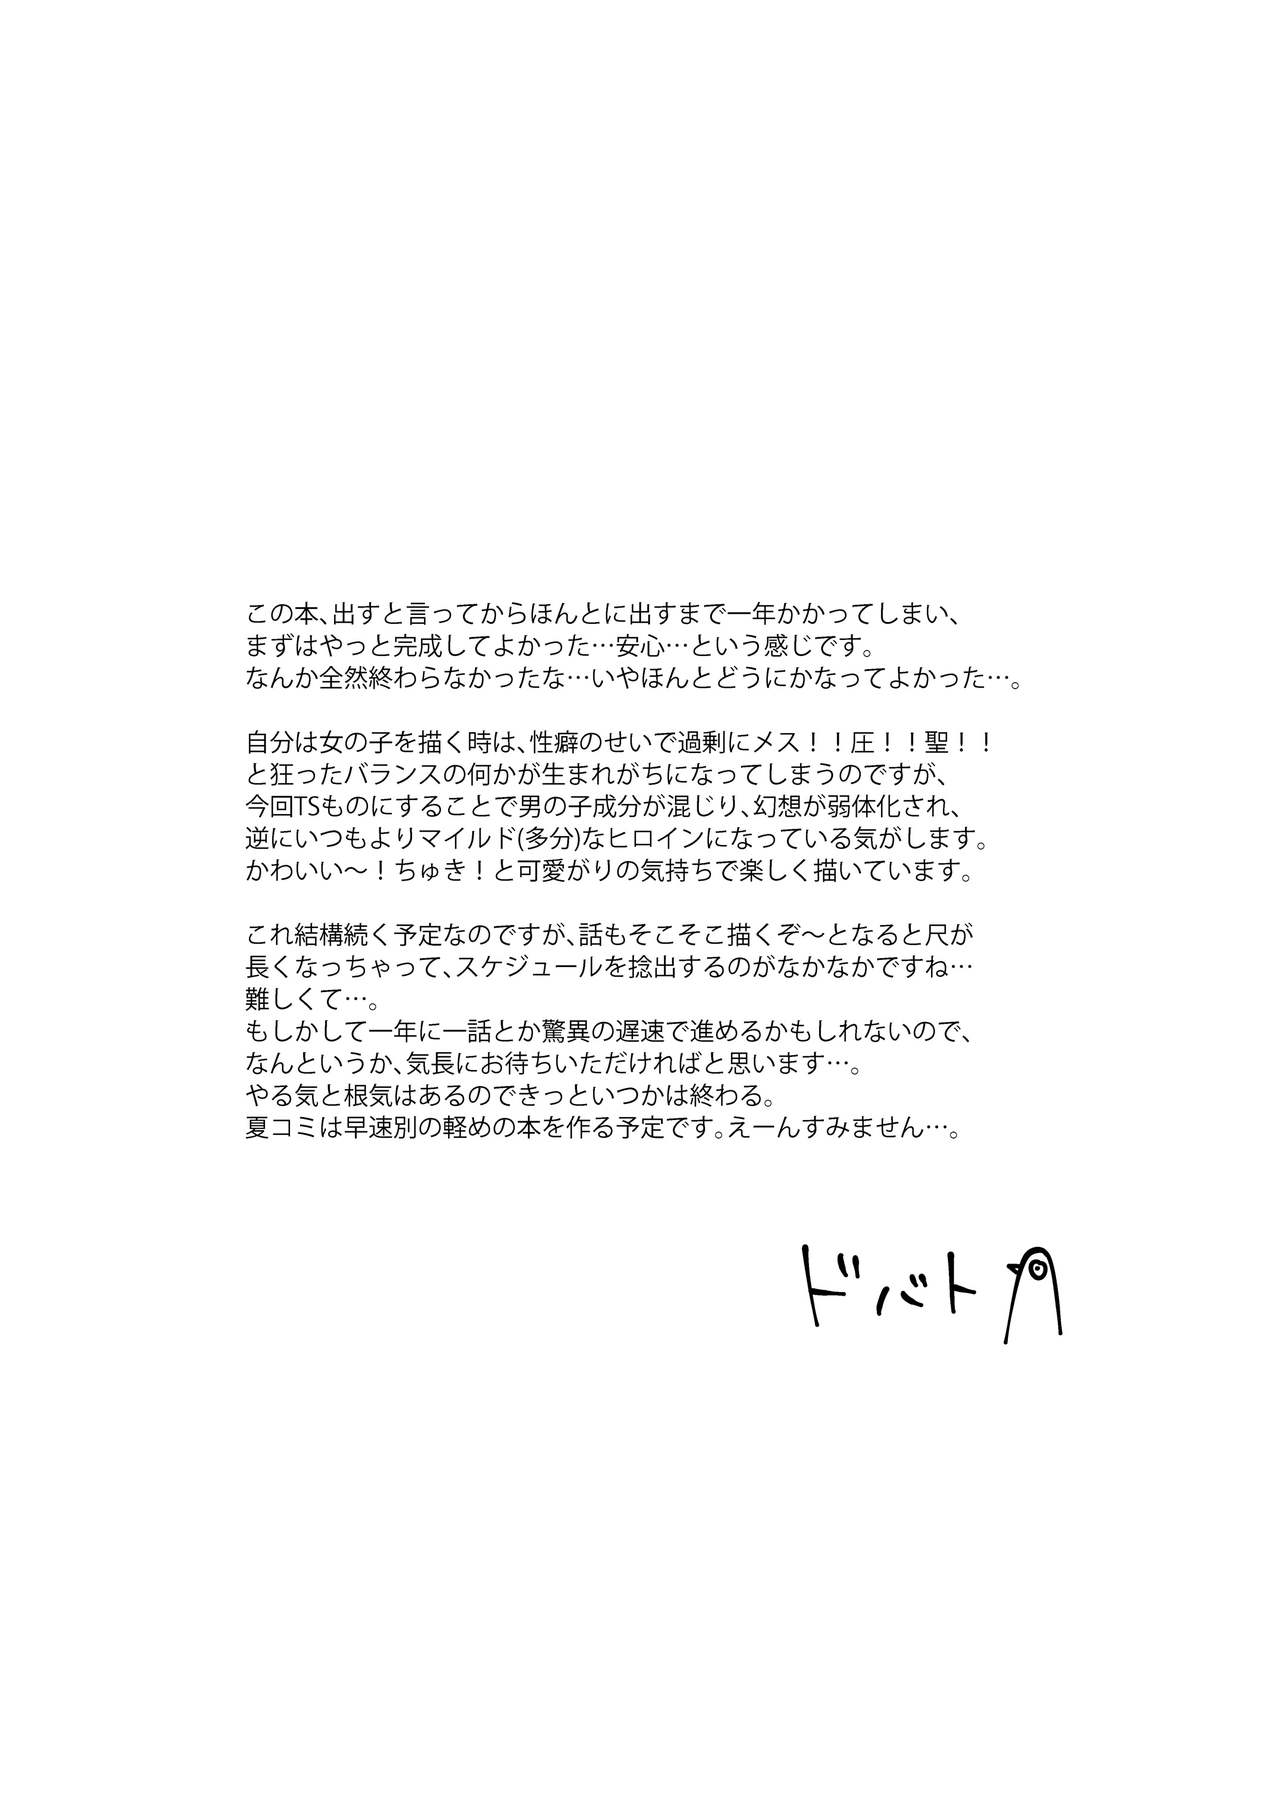 この本、出すと言ってからほんとに出すまで一年かかってしまい、
まずはやっと完成してよかった…安心…という感じです。
なんか全然終わらなかったな…いやほんとどうにかなってよかった…。
自分は女の子を描く時は、性癖のせいで過剰にメス！！圧！！聖！！
と狂ったバランスの何かが生まれがちになってしまうのですが、
今回TSものにすることで男の子成分が混じり、幻想が弱体化され、
逆にいつもよりマイルド(多分)なヒロインになっている気がします。
かわいい～！ちゅき！と可愛がりの気持ちで楽しく描いています。
これ結構続く予定なのですが、話もそこそこ描くぞ～となると尺が
長くなっちゃって、スケジュールを捻出するのがなかなかですね…
難しくて…。
もしかして一年に一話とか驚異の遅速で進めるかもしれないので、
なんというか、気長にお待ちいただければと思います…。
やる気と根気はあるのできっといつかは終わる。
夏コミは早速別の軽めの本を作る予定です。えーんすみません…。
ドバト